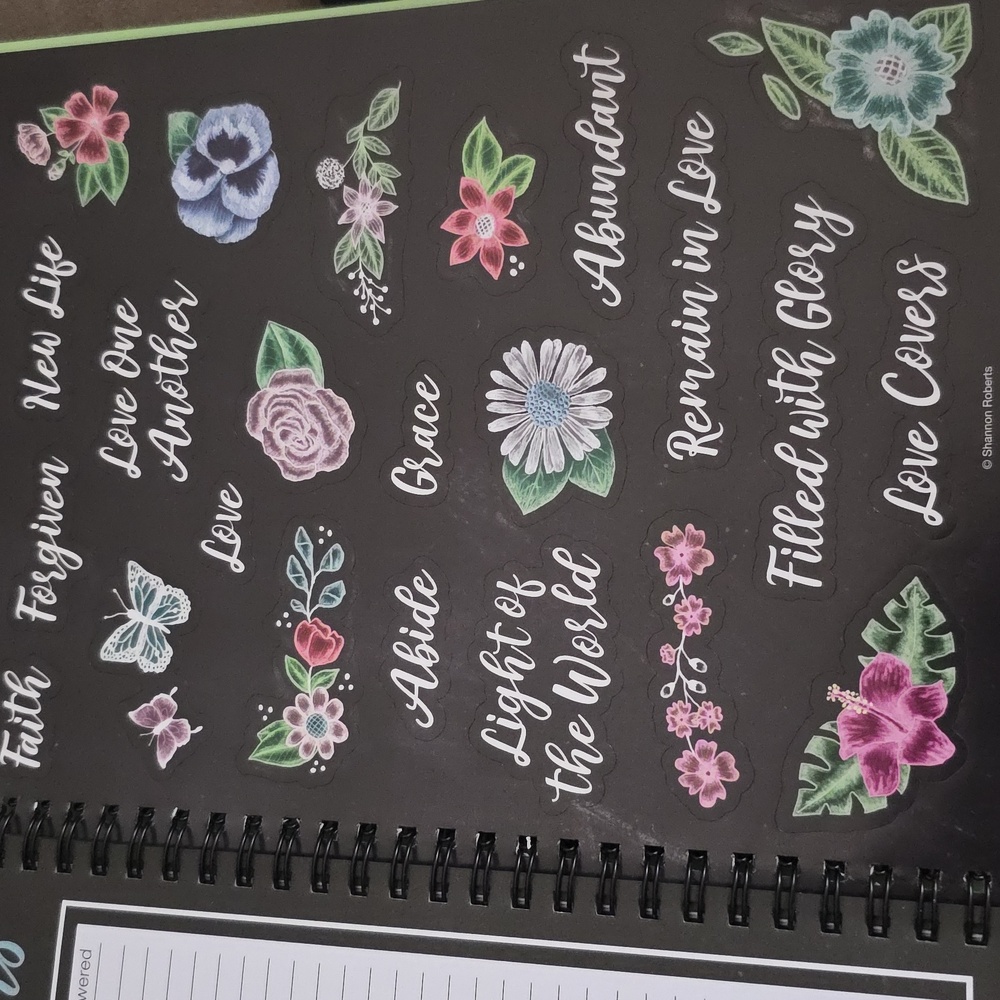 Faith
Forgiven
New Life
Love One
Another
Love
Abide
Grace
Light of
the World
Abundant
Remain in Love
Filled with Glory
Love Covers
© Shannon Roberts